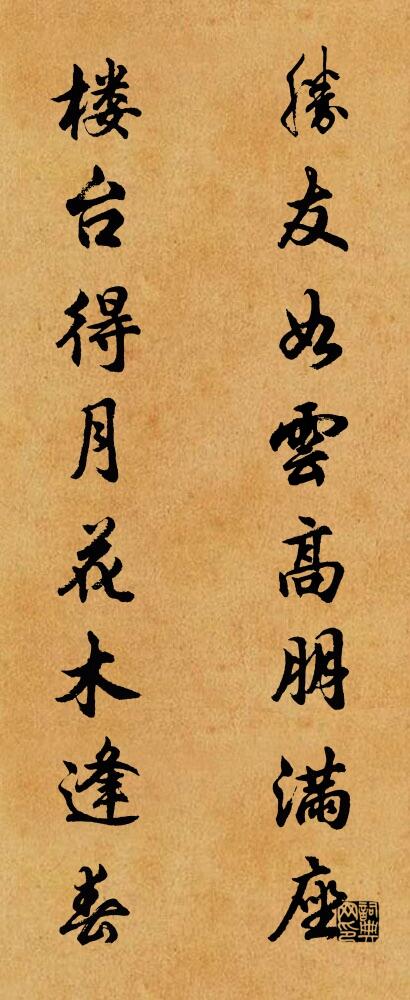 勝友如雲高朋滿座
楼台得月花木逢春
詞典网印